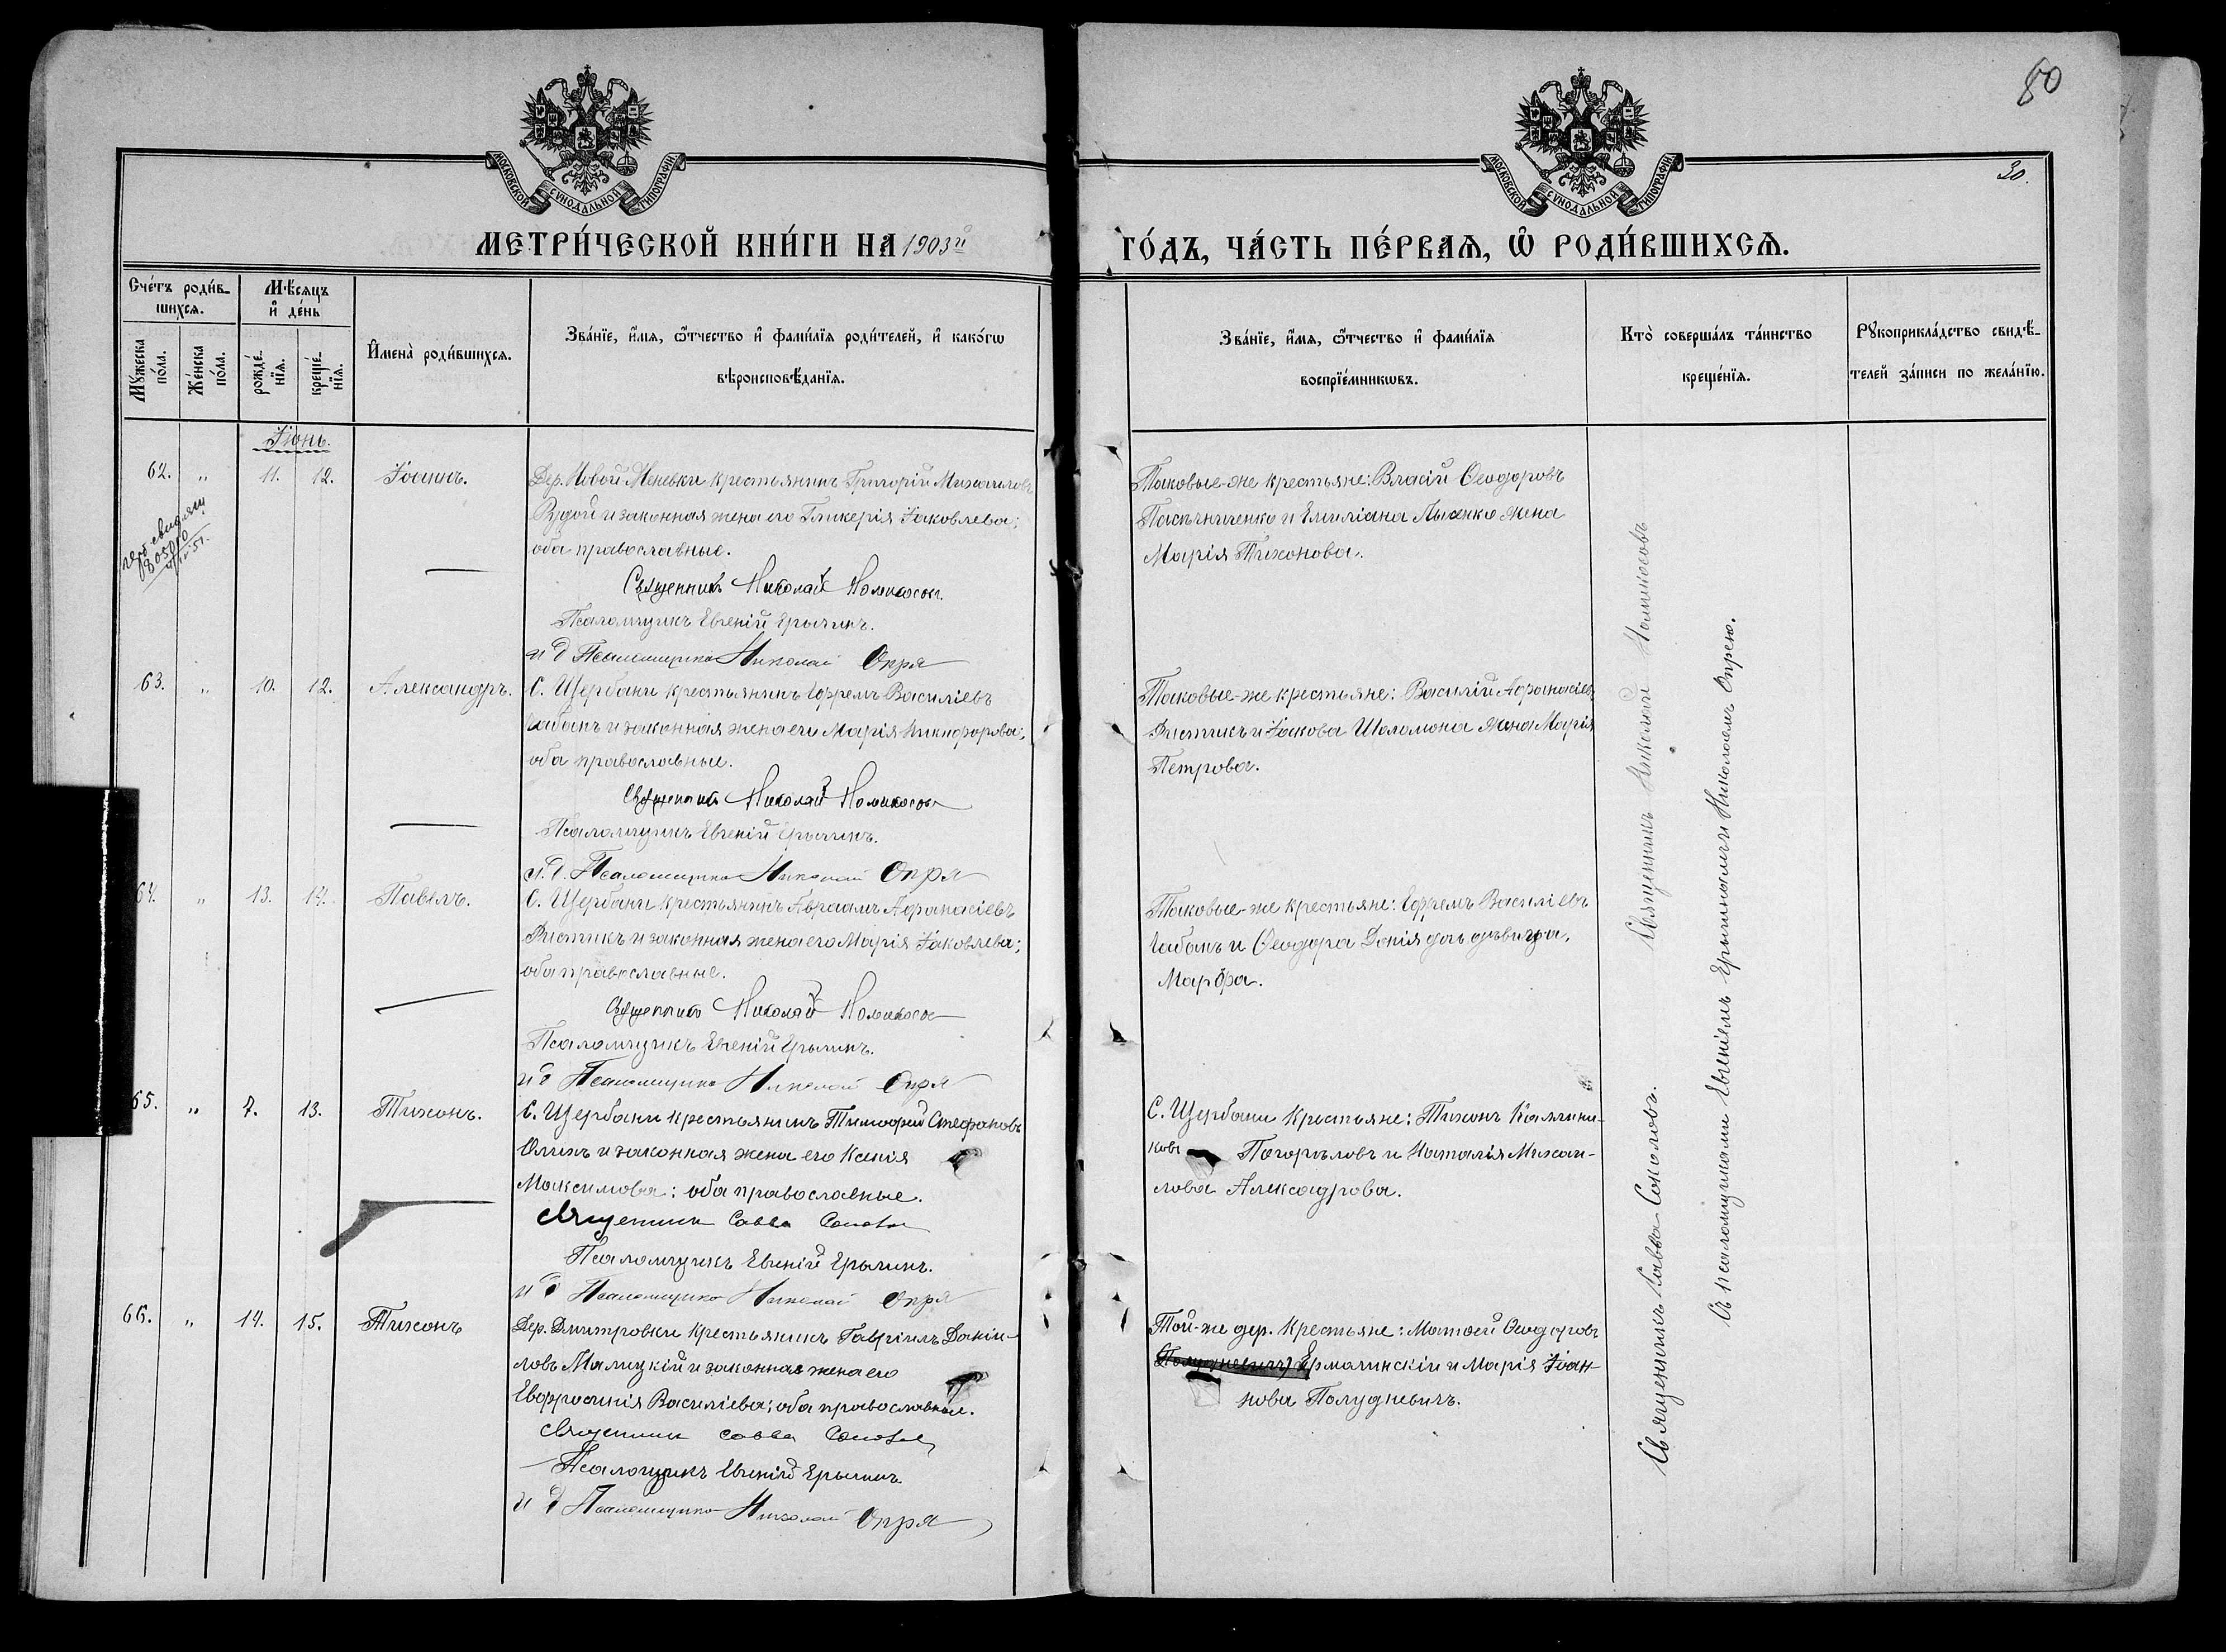 80
20.
МОСКОВСКОЙ СѴНОДАЛЬНОЙ ТИПОГРАФІИ
МОСКОВСКОЙ СѴНОДАЛЬНОЙ ТИПОГРАФІИ
МЕТРИ́ЧЕСКОЙ КНИ́ГИ НА 1903й
ГО́ДЪ, ЧА́СТЬ ПЕ́РВАЯ, Ѡ РОДИ́ВШИХСЯ.
Сче́тъ роди́в-
шихся.
Мꙋжеска по́ла.
Же́нска по́ла.
Мѣсяцъ
и҆ де́нь
рожде́-
нїя.
креще́-
нїя.
И҆мена̀ роди́вшихся.
Зва́нїе, и҆́мя, ѻ҆́тчество и҆ фами́лїя роди́телей, и҆ како́гѡ
вѣроисповѣ́данїя.
Зва́нїе, и҆́мя, ѻ҆́тчество и҆ фами́лїя
воспрїе́мникѡвъ.
Кто̀ соверша́лъ та́инство
креще́нїя.
Рꙋкоприкла́дство свидѣ́-
телей за́писи по жела́нїю.
Іюнь.
62. " 11. 12. Іоаннъ.
Дер. Новой-Меневки крестьянинъ Григорій Михаиловъ
Рудой и законная жена его Гликерія Іаковлева;
оба православные.
Священникъ Николай Номикосовъ
Псаломщикъ Евгеній Ерыгинъ.
и д Псаломщика Николай Опря
Таковые-же крестьяне: Власій Ѳеодоровъ
Пасѣчниченко и Емиліана Лысенко жена
Марія Тихонова.
63. " 10. 12. Александръ.
С. Щербани крестьянинъ Ефремъ Василіевъ
Чабанъ и законная жена его Марія Никифорова;
оба православные.
Священникъ Николай Номикосовъ
Псаломщикъ Евгеній Ерыгинъ.
и.д. Псаломщика Николай Опря
Таковые-же крестьяне: Василій Аѳанасіевъ
Ристикъ и Іакова Шоломона жена Марія
Петрова.
64. " 13. 14. Павелъ.
С. Щербани крестьянинъ Авраамъ Аѳанасіевъ
Ристикъ и законная жена его Марія Іаковлева;
оба православные.
Священникъ Николай Номикосовъ
Псаломщикъ Евгеній Ерыгинъ.
и д Псаломщика Николай Опря
Таковые-же крестьяне: Ефремъ Василіевъ
Чабанъ и Ѳеодора Донія дочь дѣвица,
Марѳа.
65. " 7. 13. Тихонъ.
С. Щербани крестьянинъ Тимоѳей Стефановъ
Олинъ и законная жена его Ксенія
Максимова; оба православные.
Священникъ Савва Соколовъ
Псаломщикъ Евгеній Ерыгинъ.
и д Псаломщика Николай Опря
С. Щербани крестьяне: Тихонъ Каллини-
ковъ Погорѣловъ и Наталія Михаи-
лова Алексадрова.
66. " 14. 15. Тихонъ
Дер. Дмитровки крестьянинъ Гавріилъ Даніи-
ловъ Малицкій и законная жена его
Евфросинія Василіева; оба православные.
Священникъ Савва Соколовъ
Псаломщикъ Евгеній Ерыгинъ
и д Псаломщика Николай Опря
Той-же дер. крестьяне: Матѳей Ѳеодоровъ
Полудневичъ Ермалинскій и Марія Іоан-
нова Полудневичъ.
Священникъ Николай Номикосовъ
Священникъ Савва Соколовъ.
Съ псаломщиками Евгеніемъ Ерыгинымъ и Николаемъ Опрею.